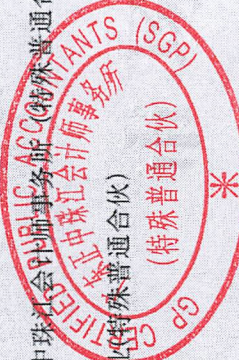 中珠江会计师事务所（特殊普通合
(特殊普通合伙)
CERTIFIED PUBLIC ACCOUNTANTS (SGP) GP
广东正中珠江会计师事务所
(特殊普通合伙)